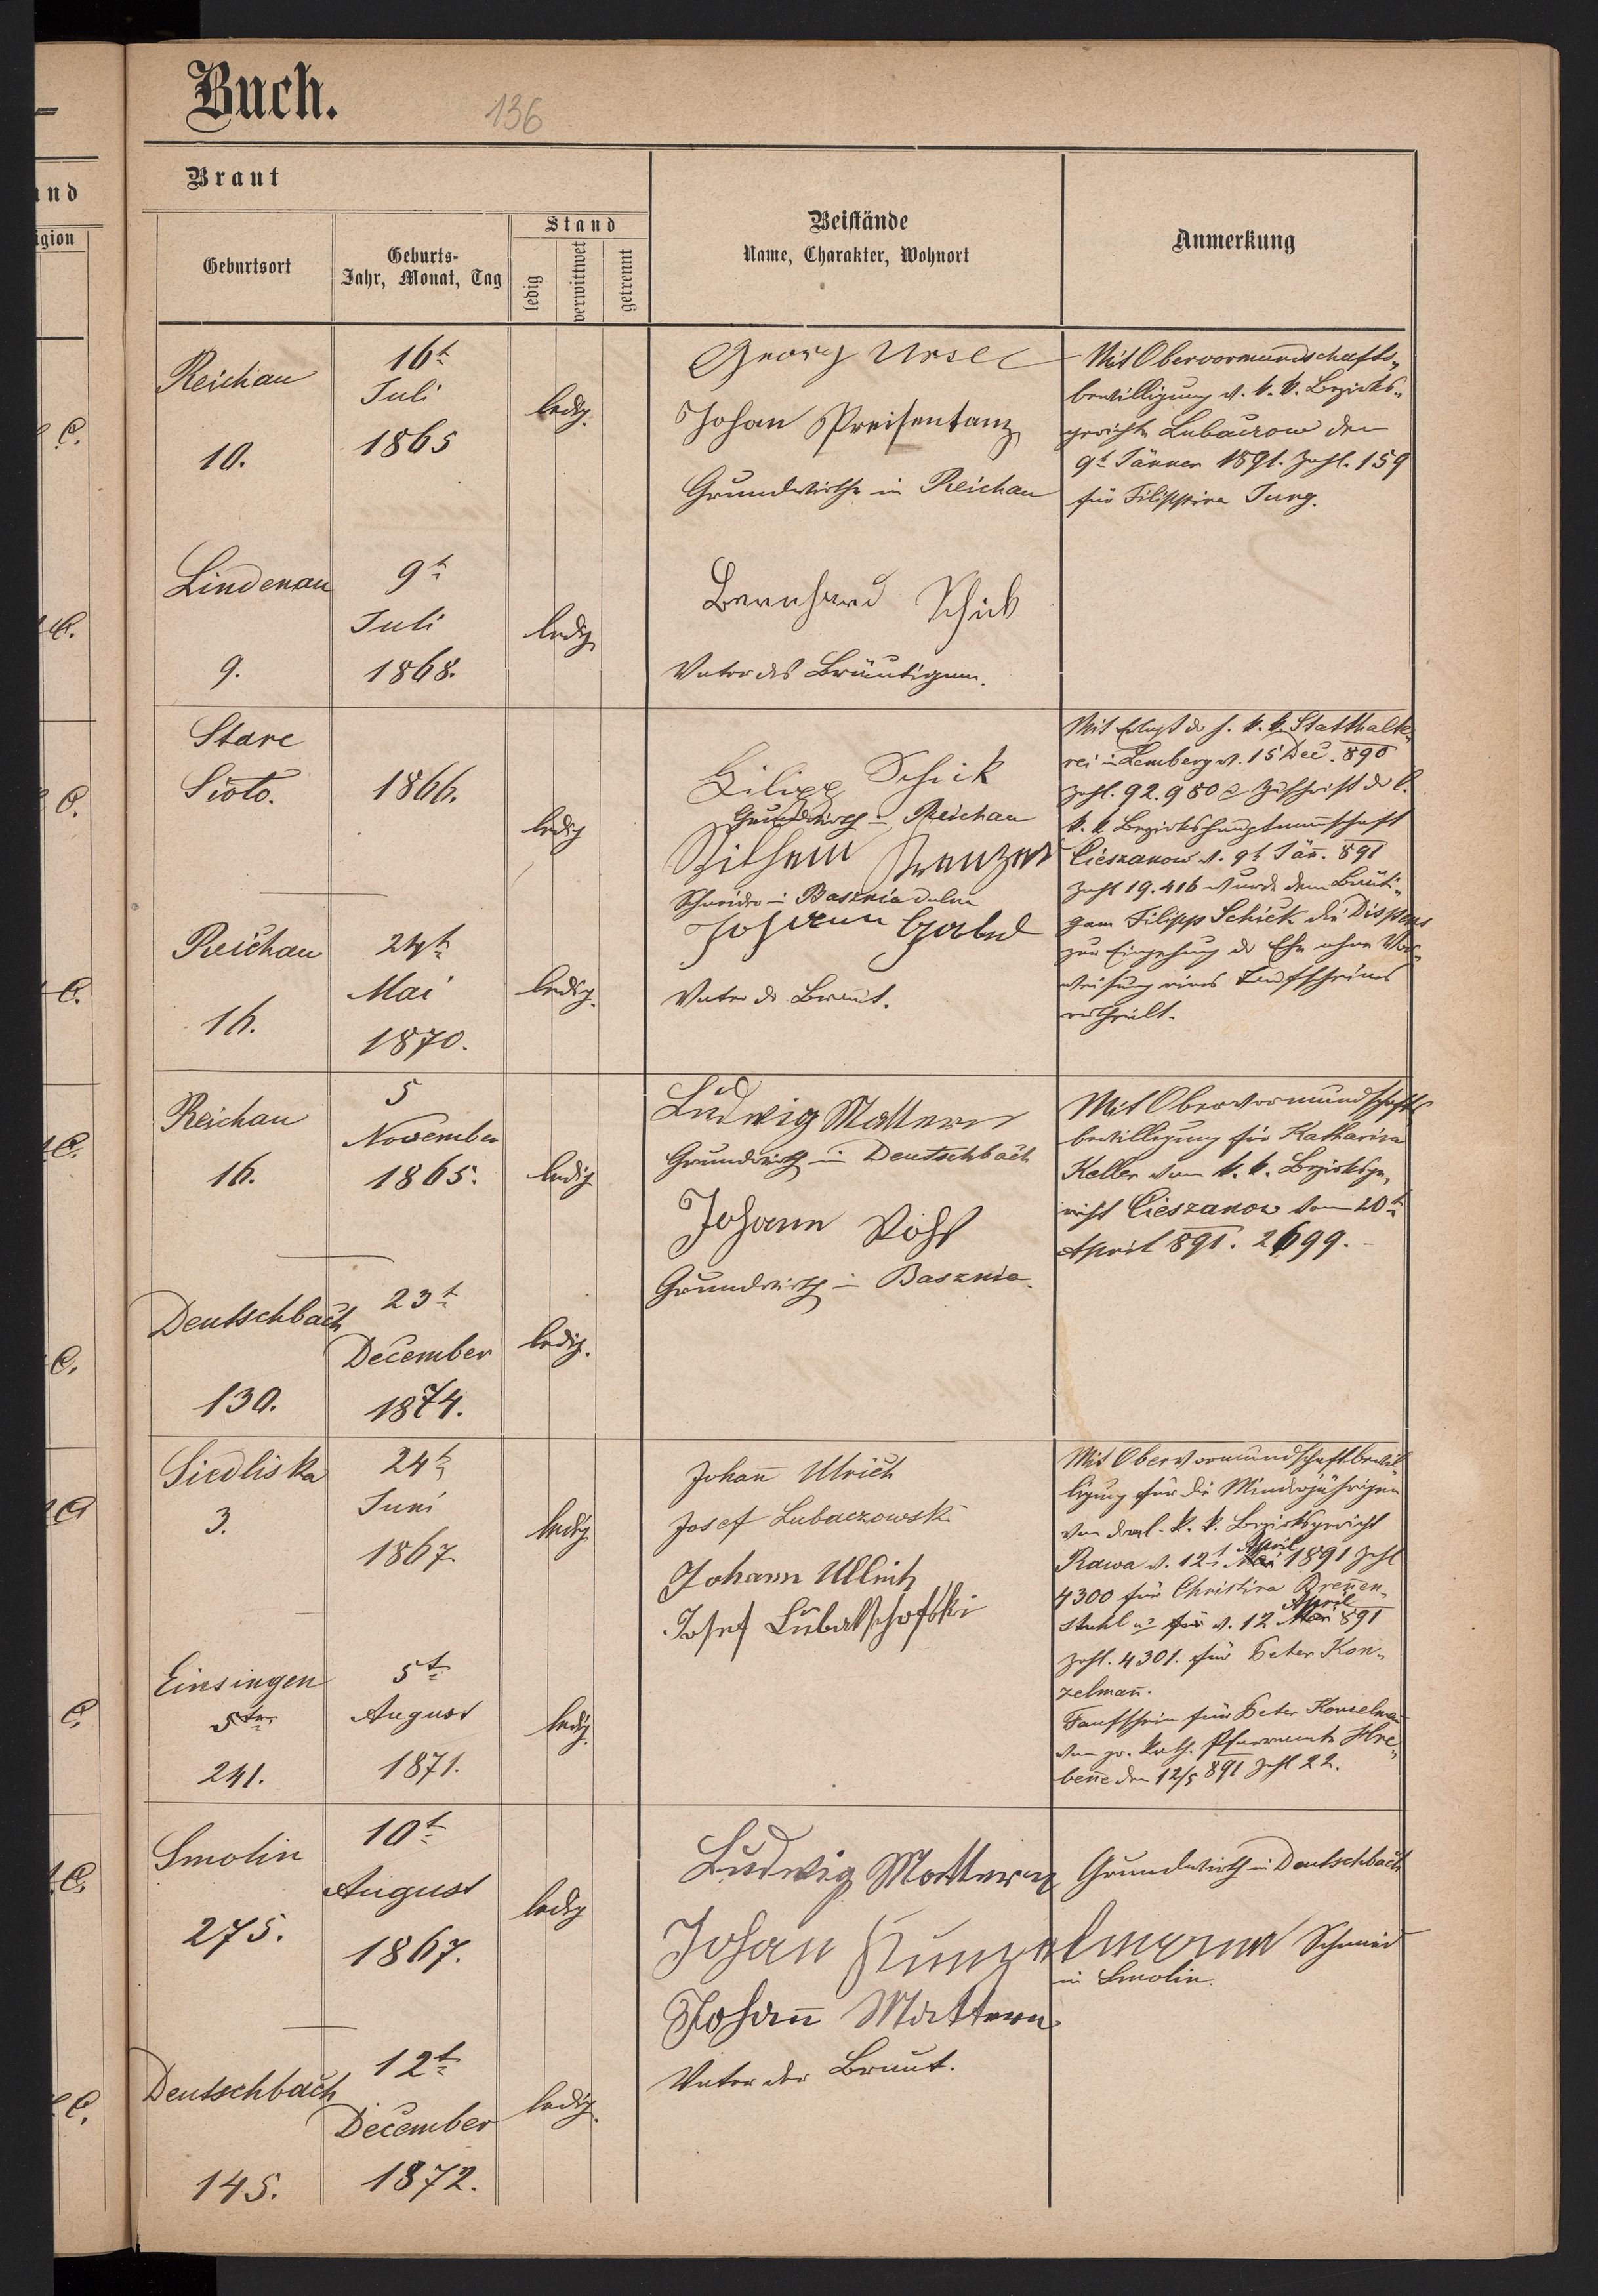 Buch.
136
Braut
Geburtsort
Geburts-
Jahr, Monat, Tag
Stand
ledig
verwittwet
getrennt
Beistände
Name, Charakter, Wohnort
Anmerkung
Reichau
10.
16t
Juli
1865
ledig.
Georg Ursel
Johan Preisentanz
Grundwirthe in Reichau
Mit Obervormundschafts-
bewilligung v. k. k. Bezirks-
gericht Lubaczow den
9t Jänner 1891. Zahl. 159
für Filippina Jung.
Lindenau
9.
9t
Juli
1868.
ledig
Bernhard Schik
Vater des Bräutigam.
Stare
Sioło.
1866.
ledig
Reichau
16.
24t
Mai
1870.
ledig.
Filipp Schick
Grundwirth in Reichau
Wilhelm Kreuzer
Schneider in Basznia dolna
Johann Gabel
Vater der Braut.
Mit Erlaß der h. k. k. Statthalte-
rei in Lemberg v. 15 Dec. 890
Zahl. 92.980 & Zuschrift der l.
k. k. Bezirkshauptmannschaft
Cieszanow v. 9t Jän. 891
Zahl 19.416 wurde dem Bräuti-
gam Filipp Schick die Dispens
zur Eingehung der Ehe ohne Vor-
weisung eines Taufscheines
ertheilt.
Reichau
16.
5
November
1865.
ledig
Deutschbach
130.
23t
December
1874.
ledig.
Ludwig Mattern
Grundwirth in Deutschbach
Johann
Grundwirth in Basznia.
Mit Obervormundschafts
bewilligung für Katharina
Keller vom k. k. Bezirksge-
richt Cieszanow vom 20t
April 891. 2699.-
Siedliska
3.
24t
Juni
1867
ledig
Einsingen
241.
5t
August
1871.
ledig
Johan̄ Ulrich
Josef Lubaczowski
Johann Ullrich
Josef Lubatschofski
Mit Obervormundschaftbewil-
ligung für die Minderjährigen
von dem l. k. k. Bezirksgericht
Rawa v. 12t April 1891 Zahl
4300 für Christina Brenen-
stuhl u v. 12 April 891
Zahl. 4301. für Peter Kon-
zelman̄.
Taufschein für Peter Konzelman̄
vom gr. kath. Pfarramte Hre-
ben̄e den 12/5 891 Zahl 22.
Smolin
275.
10t
August
1867.
ledig
Deutschbach
145.
12t
December
1872.
ledig.
Ludwig Mattern Grundwirth in Deutschbach
Johan Kunzelmann Schmied
in Smolin.
Johan̄ Mattern
Vater der Braut.